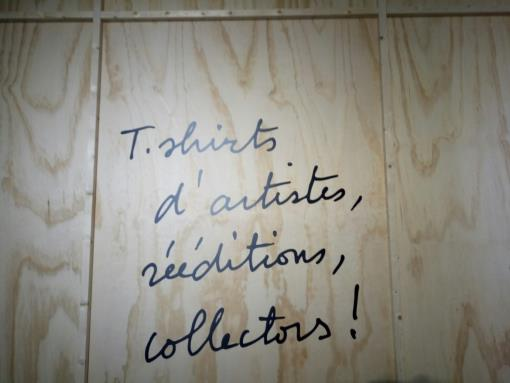 T.shirts
d'artistes,
rééditions,
collectors!